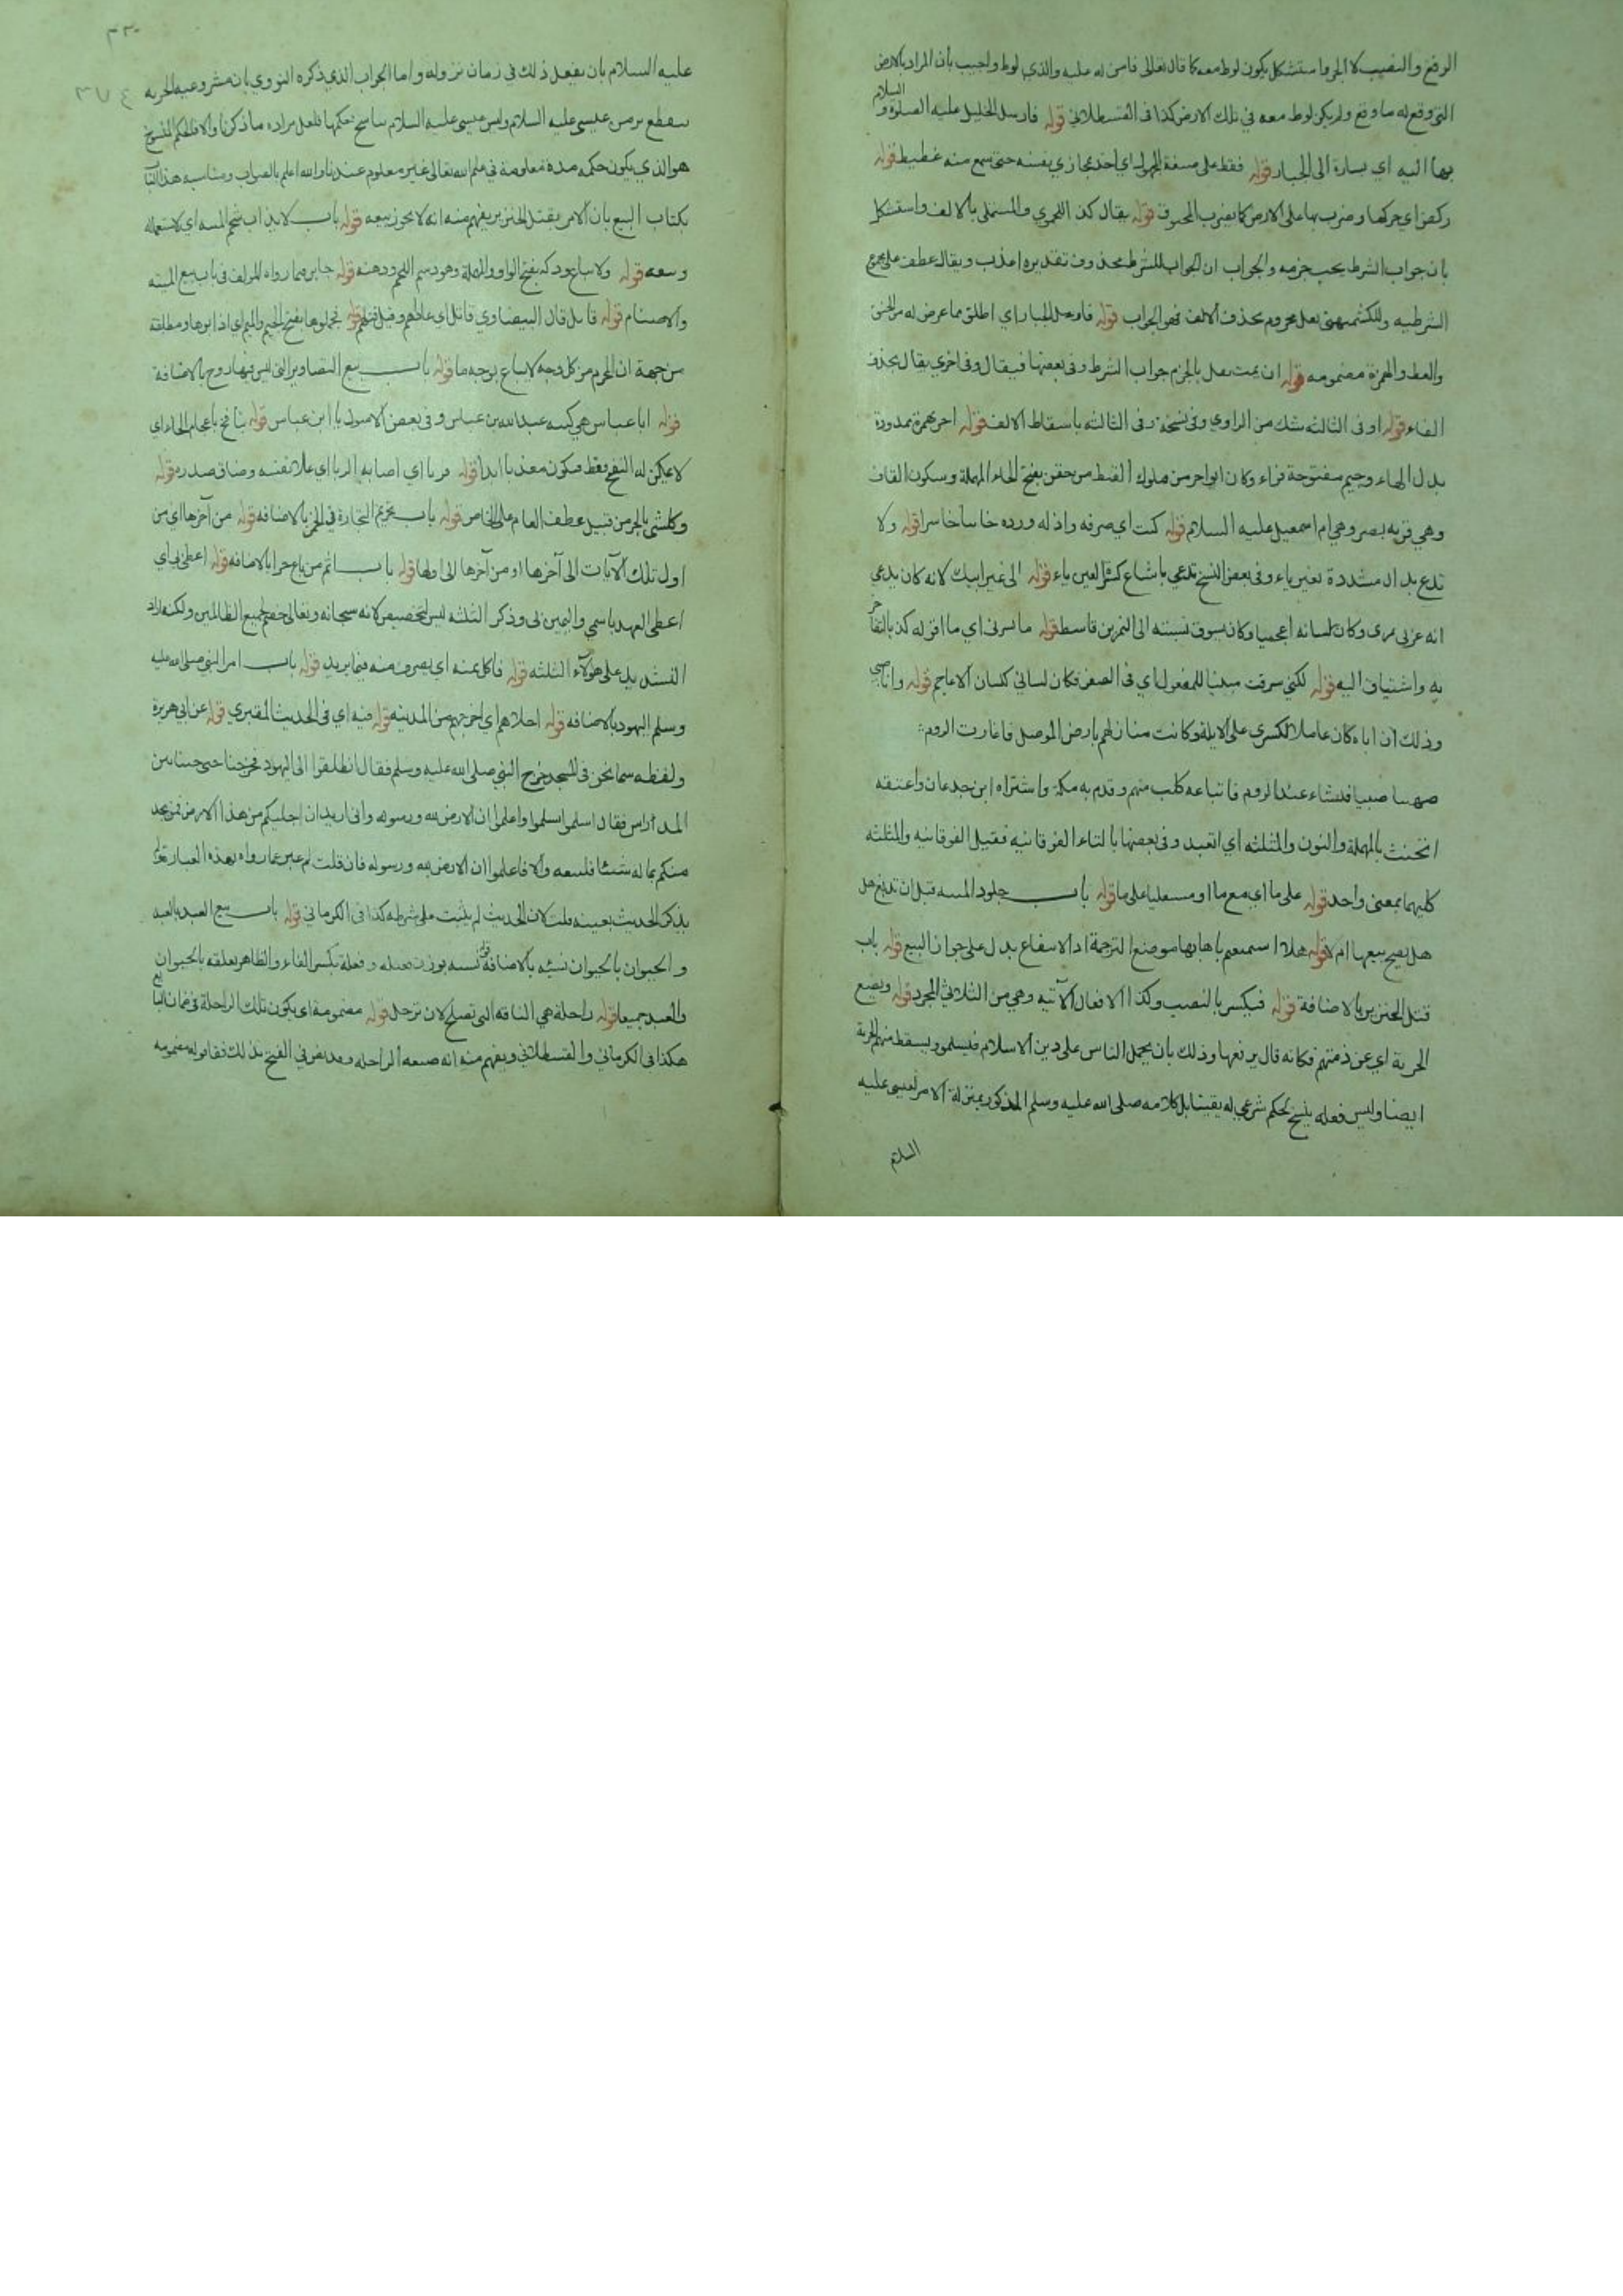 الرفع والنصب لا الجر واستشكل بكون لوط معه كما قال تعالى فامن له عليه والذي لوط واجيب بأن المراد بالارض
التي وقع له ما وقع ولم يكن لوط معه في تلك الارض كذا في القسطلاني قوله فارسل الخليل عليه الصلوة و السلام
بها اليه اي بسارة الى الجبار قوله فغط على صيغة المجهول اي اخذ مجازي نفسه حتى سمع منه غطيط قوله
ركض اي حركها وضرب بها على الارض كما يضرب قوله يقال كذا والمستملى بالالف واستشكل
بان جواب الشرط يجب جزمه والجواب ان الجواب للشرط محذوف تقديره اعذب ويقال عطف على
الشرطيه مجزوم بحذف الالف فهو الجواب قوله فارسل الجبار اي اطلق مما عرض له من الخنق
والغط والهمزة مضمومه قوله ان يمت يقل بالجزم جواب الشرط وفي بعضها فيقال وفي اخرى يقال بحذف
الفاء قوله او في الثالثه شك من الراوي وفي نسخة وفي الثالثه باسقاط الالف قوله اجر بهمزة ممدودة
بدل الهاء وجيم مفتوحة فراء وكان ابو اجر من ملوك القبط من حفن بفتح الحاء المهملة وسكون الفاء
وهي قرية بمصر وهي ام اسمعيل عليه السلام قوله كبت اي صرفه واذله ورده خاسا خاسرا قوله ولا
تدع بدال مشددة بغير ياء وفي بعض النسخ تدعي باشباع كسرة العين ياء قوله الى غير ابيك لانه كان يدعي
انه عربي نمري وكان لسانه اعجميا وكان يسوق نسبته الى النمر بن قاسط قوله ما يسرني اي ما افرله كذبا
به واشتياف اليه قوله لكني سرقت مبنيا للمفعول اي في الصغر فكان لساني كلسان الاعاجم قوله وانا صبي
وذلك ان اباه كان عاملا لكسرى على الابلة وكانت منازلهم بارض الموصل فاغارت الروم
صهيبا صبيا فنشاء عند الروم فابتاعه كلب منهم وقدم به مكة واشتراه ابن جدعان واعتقه
اتحنث بالمهملة والنون والمثلثه اي اتعبد وفي بعضها بالتاء الفوقانيه فقيل الفوقانيه والمثلثه
كليهما بمعنى واحد قوله على ما اي مع ما او مستعليا على ما قوله باب جلود الميسه قبل ان تدبغ هل
هل يصح بيعها ام لا قوله هلا استمتعتم باهابها موضع الترجمة اذ الانتفاع يدل على جواز البيع قوله باب
قتل الخنزير بالاضافة قوله فيكسر بالنصب وكذا الافعال الآتيه وهي من الثلاثي المجرد قوله ويضع
الجزية اي عن ذمتهم فكانه قال يرفعها وذلك بان يحمل الناس على دين الاسلام فيسلمو ويسقط منهم الجزية
ايضا وليس فعله ينسخ لحكم شرعي له يقينا بل كلامه صلى الله عليه وسلم المذكور بمنزلة الامر لعيسى عليه
السلام
عليه السلام بان يفعل ذلك في زمان نزوله واما الجواب الذي ذكره النووي بان مشروعيه الجزيه
تنقطع بزمن عيسى عليه السلام وليس عيسى عليه السلام بناسخ حكمها فلعل مراده ما ذكرنا والا فالحكم المنسوخ
هو الذي يكون حكمه مدة معلومة في علم الله تعالى غير معلوم عندنا والله اعلم بالصواب ومناسبه هذا الباب
بكتاب البيع بان الامر بقتل الخنزير يفهم منه انه لا يجوز بيعه قوله باب لا يذاب شحم الميسه اي لاستعماله
وبيعه قوله ولا يباع ودكه بفتح الواو والمهملة وهو دسم اللحم ودهنه قوله جابر مما رواه المؤلف في باب بيع الميته
والاصنام قوله قاتل قال البيضاوي قاتل اي عاداهم وقيل قتلهم قوله فجملوها بفتح الجيم والميم اي اذابوها ومطابقة
من جهة ان المحرم من كل وجه لا يباع بوجه ما قوله باب بيع التصاوير التي ليس فيها روح بالاضافة
قوله ابا عباس هي كنيه عبد الله بن عباس وفي بعض الاصول يا ابن عباس قوله بنافخ باعجام الخاء اي
لا يمكن له النفخ فقط فيكون معذبا ابدا قوله فربا اي اصابه الربا اي علا نفسه وضاق صدره قوله
وكل شئ بالجر من قبيل عطف العام على الخاص قوله باب تحريم التجارة في الخمر بالاضافه قوله من آخرها اي من
اول تلك الآيات الى آخرها او من آخرها الى اولها قوله باب اثم من باع حرا بالاضافه قوله اعطى بي اي
اعطى العهد باسمي واليمين لي وذكر الثلثه ليس لتخصيص لانه سبحانه وتعالى خصم لجميع الظالمين ولكنه اراد
التشديد على هؤلاء الثلثه قوله فاكل ثمنه اي يصرف منه فيما يريد قوله باب امر النبي صلى الله عليه
وسلم اليهود بالاضافه قوله اجلاهم اي اخرجهم من المدينه قوله فيه اي في الحديث المقبري قوله عن ابي هريرة
ولفظه بينما نحن في المسجد خرج النبي صلى الله عليه وسلم فقال انطلقوا الى اليهود فخرجنا حتى جئنا بيت
المدراس فقال اسلموا تسلموا واعلموا ان الارض لله ورسوله واني اريد ان اجليكم من هذا الارض فمن يجد
منكم بماله شيئا فليبعه والا فاعلموا ان الارض لله ورسوله فان قلت لم عبر عما رواه بهذه العبارة ولم
يذكر الحديث بعينه قلت لان الحديث لم يثبت على شرطه كذا في الكرماني قوله باب بيع العبد بالعبد
والحيوان بالحيوان نسيئه بالاضافة قوله نسيه بوزن فعيله وفعلة بكسر الفاء والظاهر تعلقه بالحيوان
والعبد جميعا قوله راحلة هي الناقه التي تصلح لان ترحل قوله مضمومة اي يكون تلك الراحلة في ضمان البائع
هكذا في الكرماني والقسطلاني ويفهم منه انه صيغه الراحله وبعد في الفتح بذلك فقالوا مضمومه